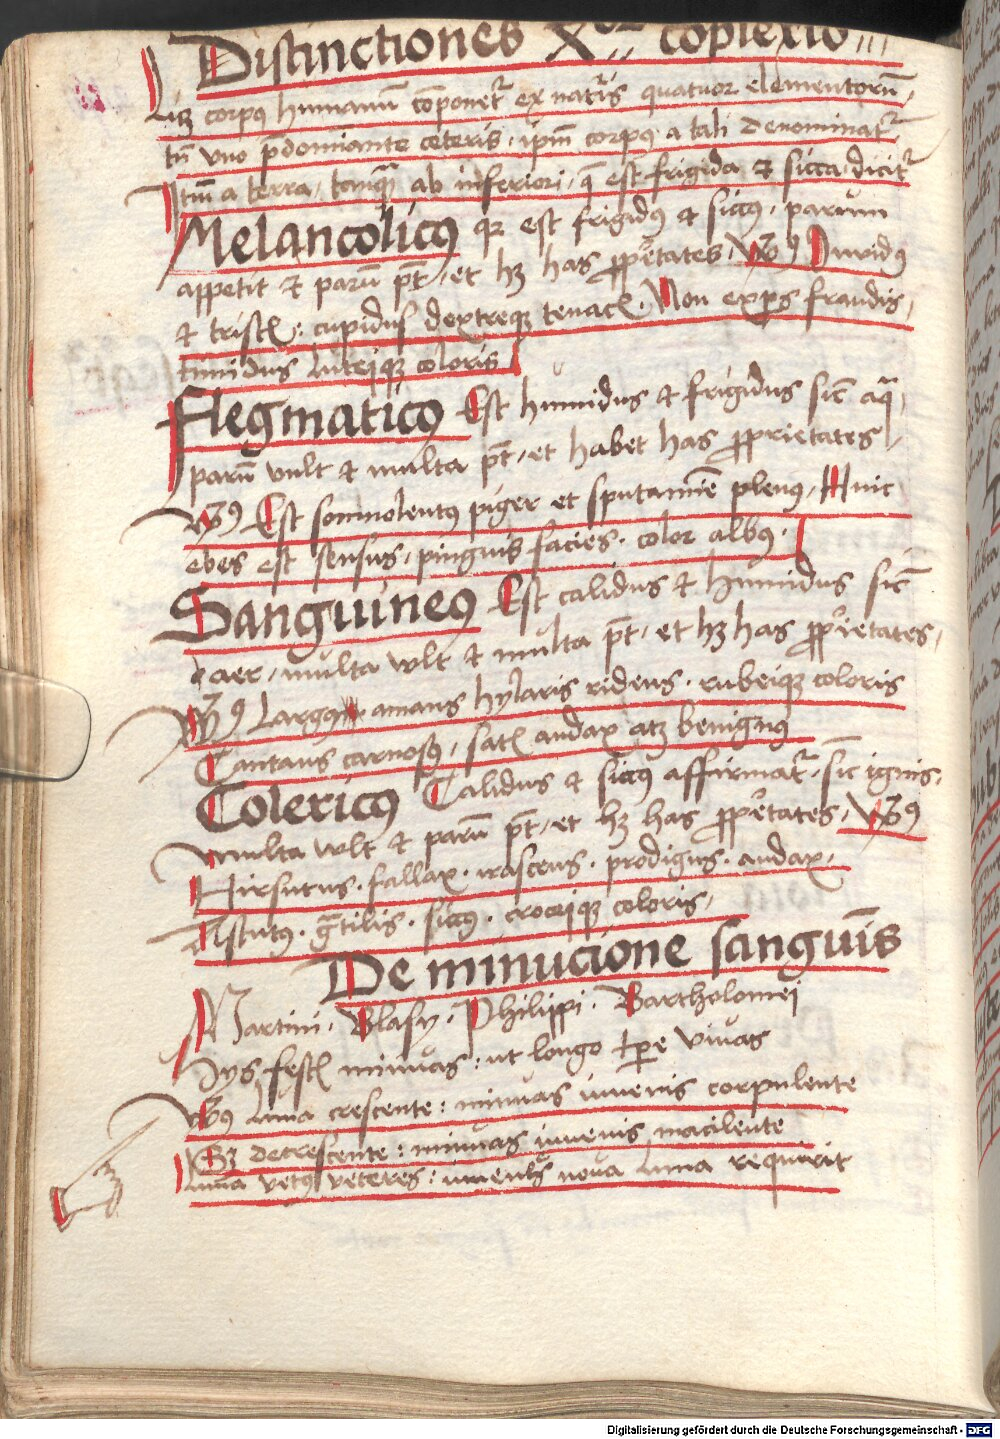 Distinctiones Xor coplexio
Lis corpus humanū componet᷒ ex naturis quatuor elementorū,
tn̄ vno p̄domiante ceteris, ipm̄ corpus a tali denominat᷒
Itm̄ a terra, tanq̄ ab inferiori, q̄ est frigida et sicca, dicit᷒
Melancolicꝰ qr est frigidꝰ et siccꝰ, parum
appetit et parū pt̄, et hꝫ has ꝓprietates, vsꝰ Invidꝰ
et tristis: cupidus dextreqꝫ tenacis. Non exꝑs fraudis,
timidus luteiqꝫ coloris
Flegmaticꝰ Est humidus et frigidus sic̄ aq̄,
parū vult et multa pt̄, et habet has ꝓprietates
vsꝰ Est somnolentꝰ piger et sputamīe plenꝰ, Huic
ebes est sensus, pinguis facies, color albꝰ.
Sanguineꝰ Est calidus et humidus sic̄
aer, multa vlt et multa pt̄, et hꝫ has ꝓprietates,
vsꝰ Largꝰ amans hylaris ridens, rubeiqꝫ coloris
Cantans carnosꝰ, satis audax atqꝫ benignꝰ
Colericꝰ Calidus et siccꝰ affirmat᷒, sic̄ ignis,
multa vlt et parū pt̄, et hꝫ has ꝓprietates, vsꝰ
Hirsutus, fallax, irascens, prodigus, audax,
Astutꝰ, gratilis, siccꝰ, croceiqꝫ coloris,
De minucione sanguīs
Martini, Blasy, Philippi, Bartholomei
Hys festis minuas: ut longo tꝑe vivas
vsꝰ luna crescente: minuas iuvenis corpulente
Sꝫ decrescente: minuas iuvenis macilente
luna vetꝰ veteres: iuvenes nova luna requirit
Digitalisierung gefördert durch die Deutsche Forschungsgemeinschaft - DFG